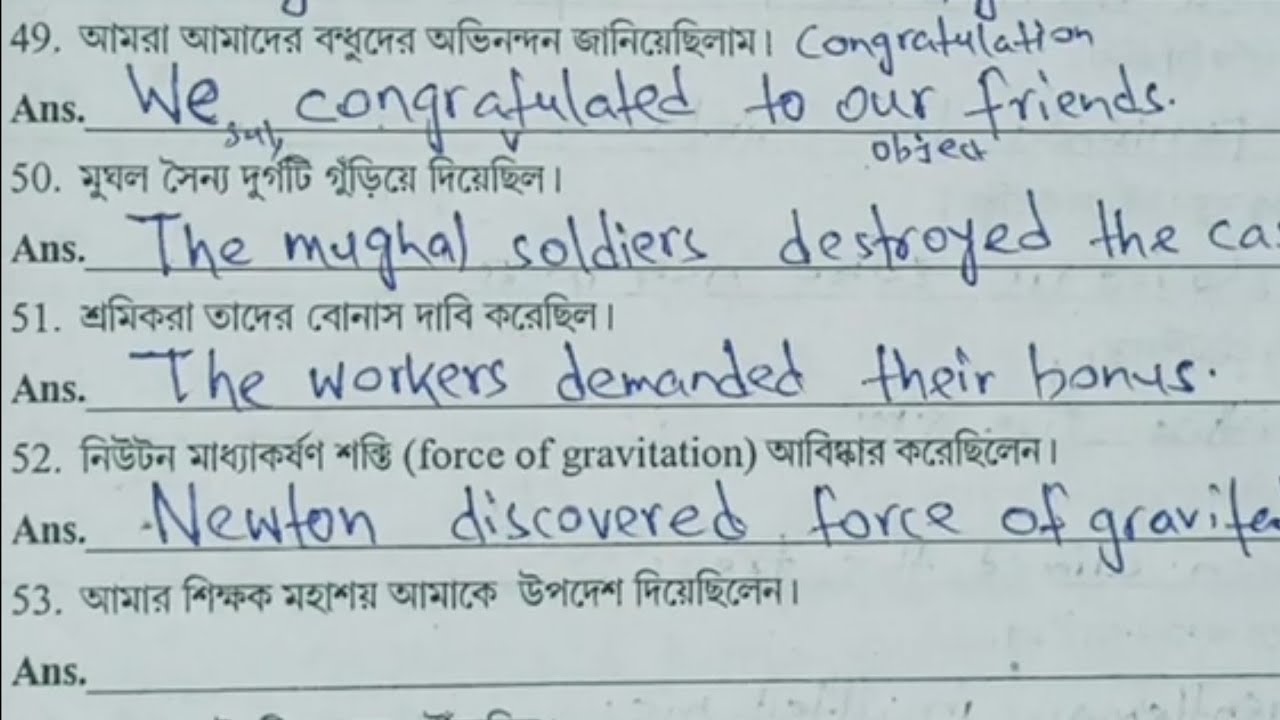 49. আমরা আমাদের বন্ধুদের অভিনন্দন জানিয়েছিলাম। Congratulation
Ans. We congratulated to our friends.
sub, v object
50. মুঘল সৈন্য দুর্গটি গুঁড়িয়ে দিয়েছিল।
Ans. The mughal soldiers destroyed the
51. শ্রমিকরা তাদের বোনাস দাবি করেছিল।
Ans. The workers demanded their bonus.
52. নিউটন মাধ্যাকর্ষণ শক্তি (force of gravitation) আবিষ্কার করেছিলেন।
Ans. Newton discovered force of
53. আমার শিক্ষক মহাশয় আমাকে উপদেশ দিয়েছিলেন।
Ans.